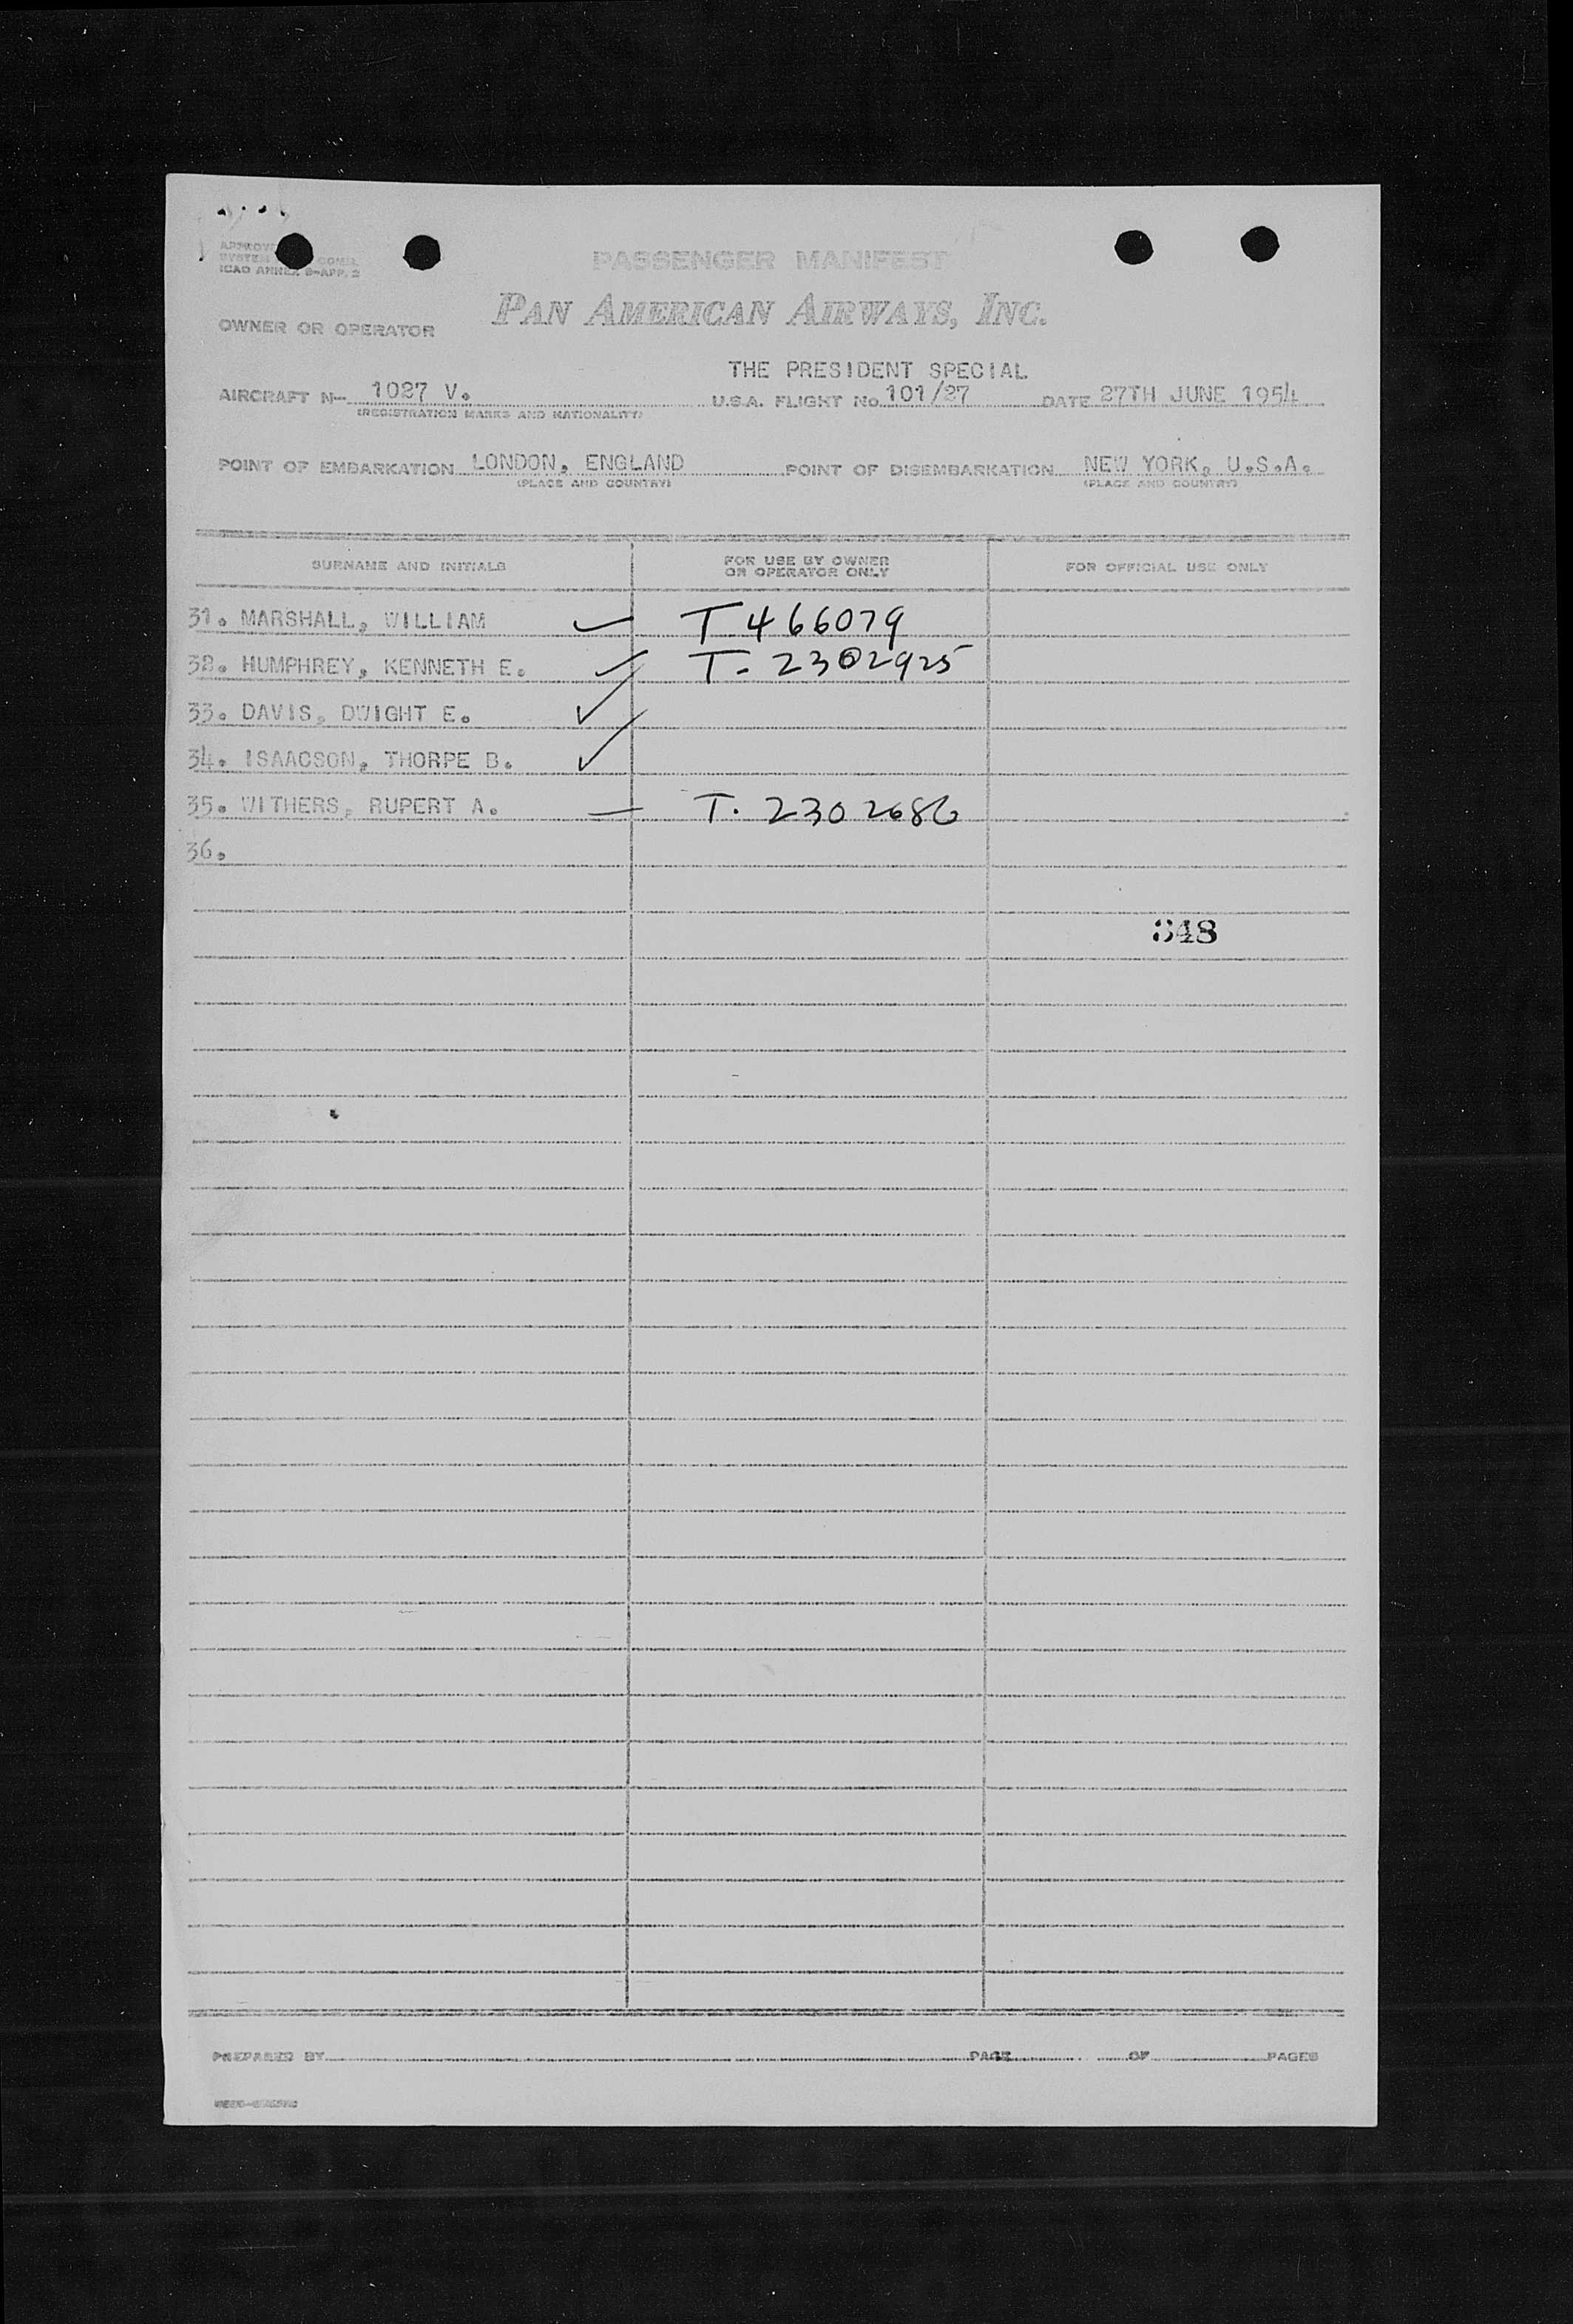 PASSENGER MANIFEST
ICAO ANNEX 9-APP. 2
PAN AMERICAN AIRWAYS, INC.
OWNER OR OPERATOR
THE PRESIDENT SPECIAL
AIRCRAFT N- 1027 V. U.S.A. FLIGHT No. 101/27 DATE 27TH JUNE 1954
(REGISTRATION MARKS AND NATIONALITY)
POINT OF EMBARKATION LONDON, ENGLAND POINT OF DISEMBARKATION NEW YORK, U.S.A.
(PLACE AND COUNTRY) (PLACE AND COUNTRY)
SURNAME AND INITIALS FOR USE BY OWNER FOR OFFICIAL USE ONLY
OR OPERATOR ONLY
31. MARSHALL, WILLIAM ✓ T 466079
32. HUMPHREY, KENNETH E. ✓ T. 2302925
33. DAVIS, DWIGHT E. ✓
34. ISAACSON, THORPE B. ✓
35. WITHERS, RUPERT A. — T. 2302686
36.
348
PREPARED BY PAGE OF PAGES